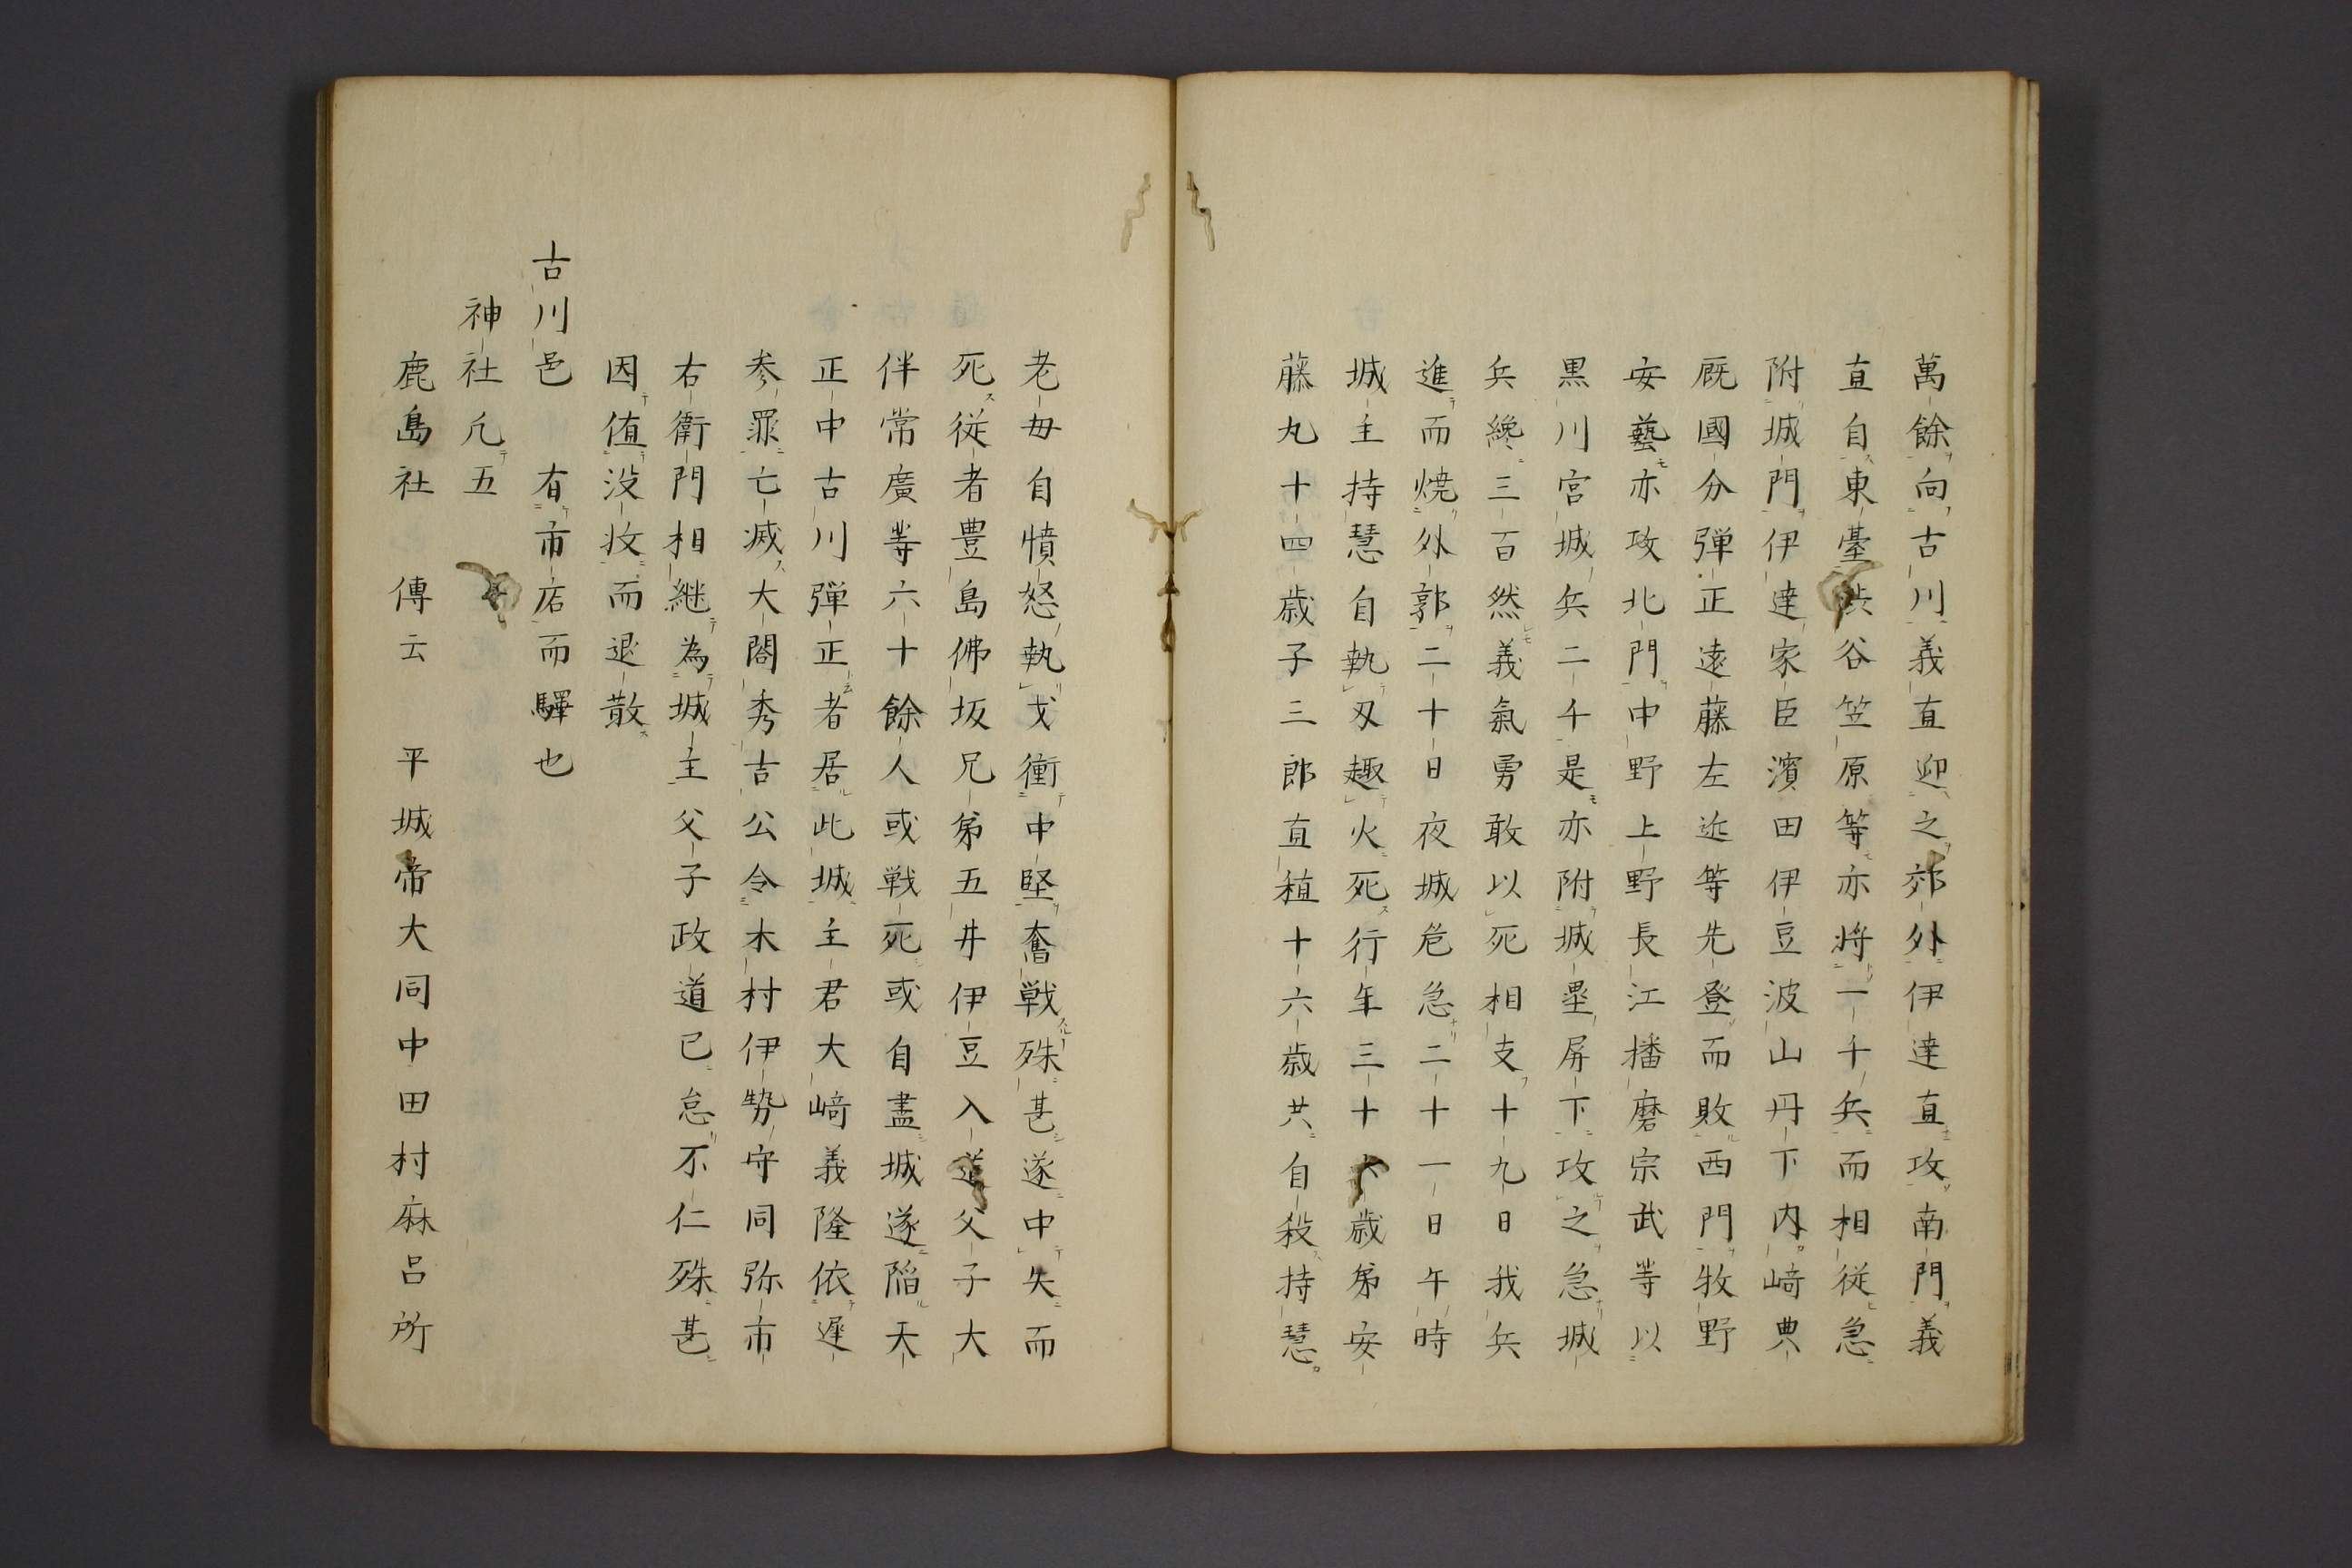 萬餘向古川義直迎之郊外伊達直攻南門義
直自東臺渋谷笠原等亦将一千兵而相従急
附城門伊達家臣濱田伊豆波山丹下内﨑典
厩國分弾正遠藤左近等先登而敗西門牧野
安藝亦攻北門中野上野長江播磨宗武等以
黒川宮城兵二千是亦附城塁屏下攻之急城
兵纔三百然義氣勇敢以死相支十九日我兵
進而焼外郭二十日夜城危急二十一日午時
城主持慧自執刄趣火死行年三十六歳弟安
藤丸十四歳子三郎直稙十六歳共自殺持慧
老母自憤怒執戈衝中堅奮戦殊甚遂中矢而
死従者豊島佛坂兄弟五井伊豆入道父子大
伴常廣等六十餘人或戦死或自盡城遂陥天
正中古川弾正者居此城主君大﨑義隆依遅
参罪亡滅大閤秀吉公令木村伊勢守同弥市
右衛門相継為城主父子政道已怠不仁殊甚
因値没收而退散
古川邑　有市店而驛也
神社凢五
鹿島社　傳云　平城帝大同中田村麻呂所